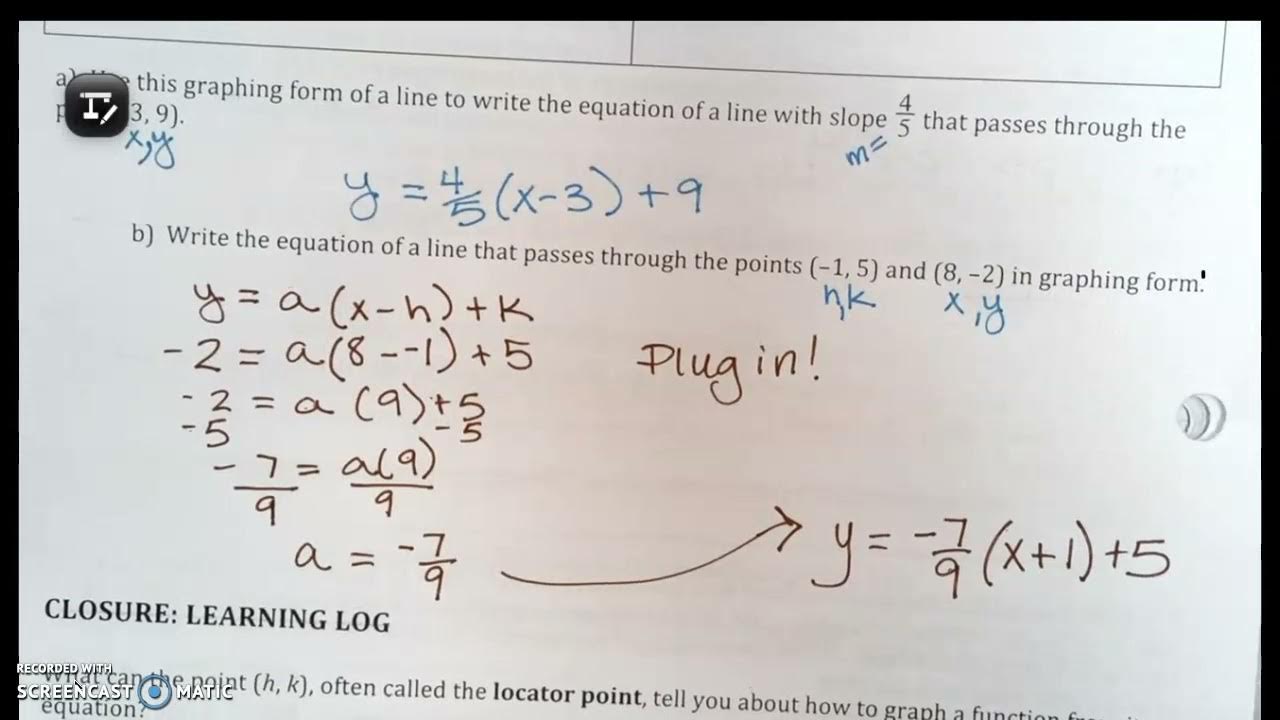 a) this graphing form of a line to write the equation of a line with slope 4/5 that passes through the
3, 9).
x,y
m=
y = 4/5 (x-3) + 9
b) Write the equation of a line that passes through the points (−1, 5) and (8, −2) in graphing form.
h,k
x,y
y = a(x-h)+k
-2 = a(8--1)+5
Plug in!
-2 = a(9)+5
-5 -5
-7 = a(9)
9 9
a = -7/9
y = -7/9 (x+1)+5
CLOSURE: LEARNING LOG
RECORDED WITH
What can the point (h, k), often called the locator point, tell you about how to graph a function
SCREENCAST MATIC
equation?